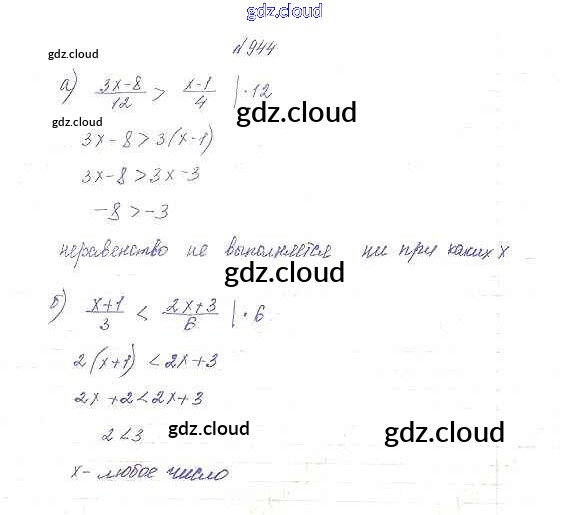 gdz.cloud
№944
gdz.cloud
а) 3x-8/12 > x-1/4 |·12
gdz.cloud
3x-8>3(x-1)
3x-8>3x-3
-8>-3
неравенство не выполняется ни при каких x
gdz.cloud
б) x+1/3 < 2x+3/6 |·6
2(x+1) <2x+3
2x+2<2x+3
2<3 gdz.cloud
gdz.cloud
x-любое число